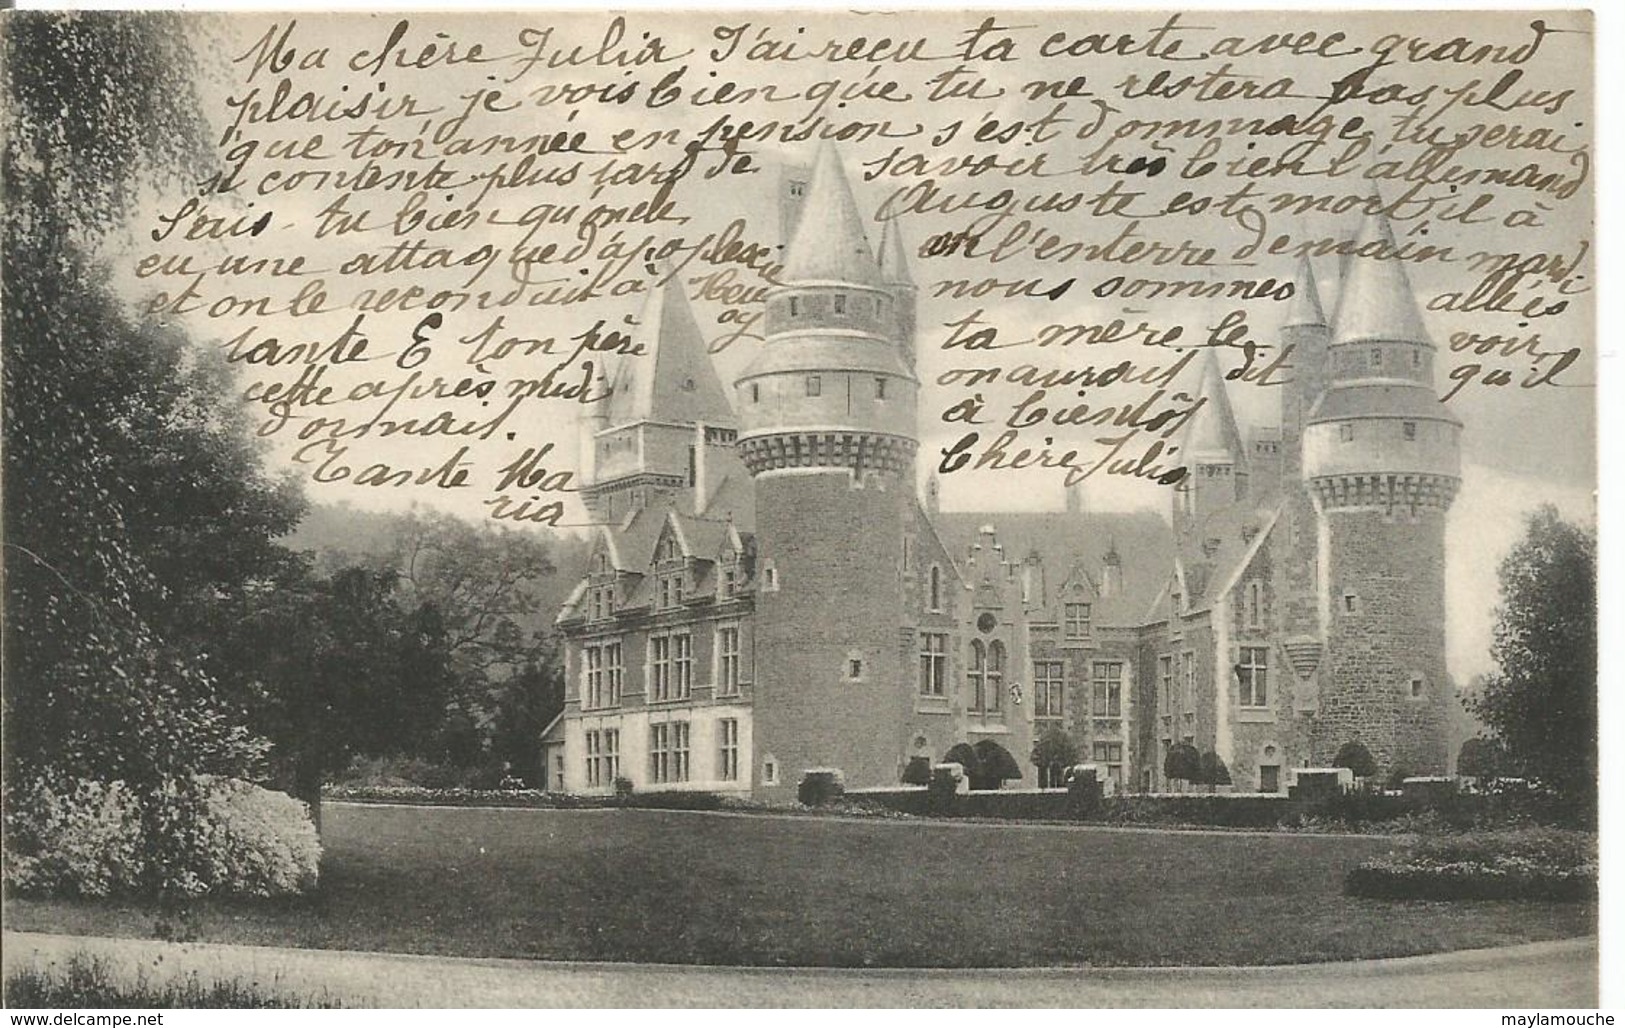 Ma chère Julia J'ai reçu ta carte avec grand
plaisir je vois bien que tu ne restera pas plus
que ton année en pension s'est dommage tu serai
si contente plus tard de savoir très bien l'allemand
Sais-tu bien qu'oncle Auguste est mort il à
eu une attaque d'apoplexie on l'enterre demain mardi
et on le reconduit à nous sommes allés
tante E ton père ta mère le voir
cette après midi on aurait dit qu'il
dormait. à bientôt
Tante Ma Chère Julia
ria
www.delcampe.net maylamouche